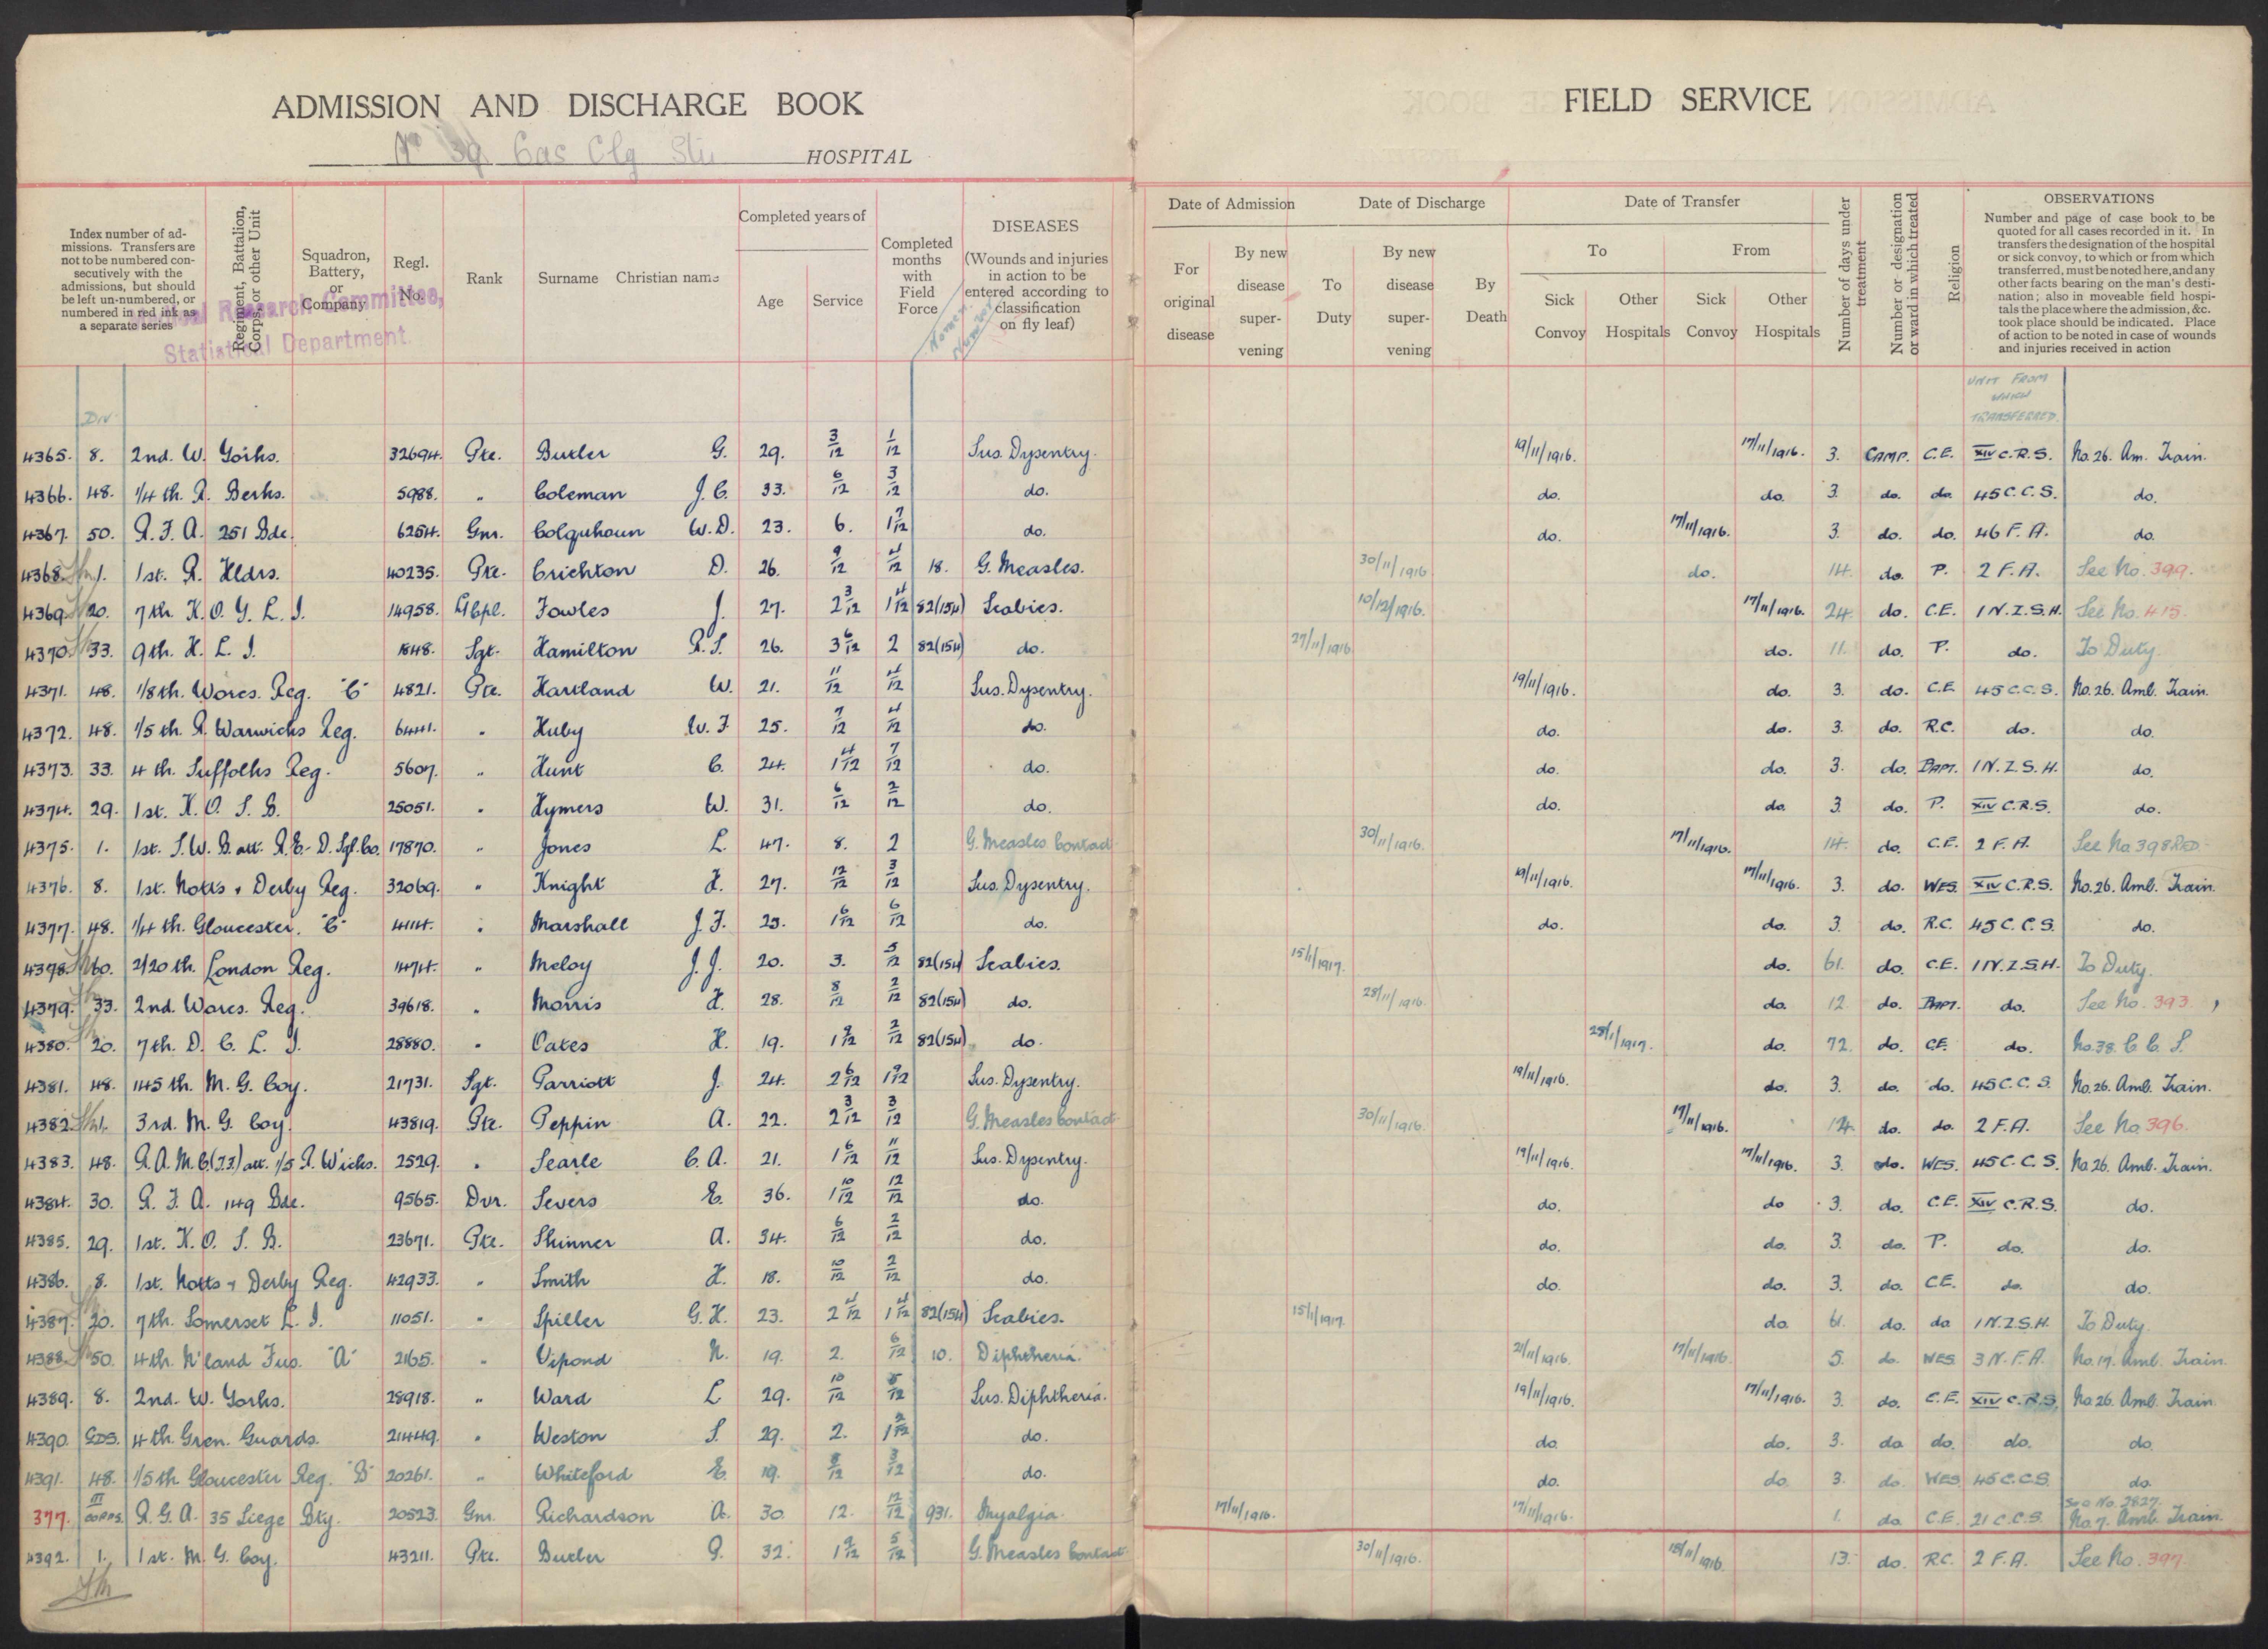 ADMISSION AND DISCHARGE BOOK
No 39 Cas Clg Stn HOSPITAL
FIELD SERVICE
Index number of admissions. Transfers are not to be numbered consecutively with the admissions, but should be left un-numbered, or numbered in red ink as a separate series
Regiment, Battalion, Corps, or other Unit
Squadron, Battery, or Company
Regl. No.
Rank
Surname Christian name
Completed years of
Age
Service
Completed months with Field Force
DISEASES
(Wounds and injuries in action to be entered according to classification on fly leaf)
Research Committee,
Statistical Department.
Date of Admission
For original disease
By new disease supervening
Date of Discharge
To Duty
By new disease supervening
By Death
Date of Transfer
To
Sick Convoy
Other Hospitals
From
Sick Convoy
Other Hospitals
Number of days under treatment
Number or designation or ward in which treated
Religion
OBSERVATIONS
Number and page of case book to be quoted for all cases recorded in it. In transfers the designation of the hospital or sick convoy, to which or from which transferred, must be noted here, and any other facts bearing on the man's destination; also in moveable field hospitals the place where the admission, &c. took place should be indicated. Place of action to be noted in case of wounds and injuries received in action
DIV
UNIT FROM WHICH TRANSFERRED
4365. 8. 2nd. W. Yorks. 32694. Pte. Butler G. 29. 3/12 1/12 Sus. Dysentry. 19/11/1916. 17/11/1916. 3. CAMP. C.E. XIV C.R.S. No. 26. Am. Train.
4366. 48. 1/4 th. R. Berks. 5988. " Coleman J. C. 33. 6/12 3/12 do. do. do. 3. do. do. 45 C.C.S. do.
4367. 50. R. F. A. 251 Bde. 6254. Gnr. Colquhoun W. D. 23. 6. 1 7/12 do. do. 17/11/1916. 3. do. do. 46 F. A. do.
4368. 1. 1st. R. Hldrs. 40235. Pte. Crichton D. 26. 9/12 4/12 18. G. Measles. 30/11/1916 do. 14. do. P. 2 F. A. See No. 399.
4369. 20. 7th. K. O. Y. L. I. 14958. L/Cpl. Fowles J. 27. 2 3/12 1 4/12 82(154) Scabies. 10/12/1916. 17/11/1916. 24. do. C.E. 1 N. Z. S. H. See No. 415.
4370. 33. 9th. H. L. I. 1848. Sgt. Hamilton R. S. 26. 3 6/12 2 82(154) do. 27/11/1916 do. 11. do. P. do. To Duty.
4371. 48. 1/8 th. Worcs. Reg. "C" 4821. Pte. Hartland W. 21. 11/12 4/12 Sus. Dysentry. 19/11/1916. do. 3. do. C.E. 45 C.C.S. No. 26. Amb. Train.
4372. 48. 1/5 th. R. Warwicks Reg. 6441. " Huby W. F. 25. 7/12 4/12 do. do. do. 3. do. R.C. do. do.
4373. 33. 4 th. Suffolks Reg. 5607. " Hunt C. 24. 1 4/12 7/12 do. do. do. 3. do. BAPT. 1 N. Z. S. H. do.
4374. 29. 1st. K. O. S. B. 25051. " Hymers W. 31. 6/12 2/12 do. do. do. 3. do. P. XIV C.R.S. do.
4375. 1. 1st. S. W. B. att. R. E. D. Sgl. Co. 17870. " Jones L. 47. 8. 2 G. Measles Contact 30/11/1916. 17/11/1916. 14. do. C.E. 2 F. A. See No 398 RED
4376. 8. 1st. Notts & Derby Reg. 32069. " Knight H. 27. 12/12 3/12 Sus. Dysentry. 19/11/1916. 17/11/1916. 3. do. WES. XIV C.R.S. No. 26. Amb. Train.
4377. 48. 1/4 th. Gloucester. "C" 4114. " Marshall J. F. 23. 1 6/12 6/12 do. do. do. 3. do. R.C. 45 C. C. S. do.
4378. 60. 2/20 th. London Reg. 1474. " Meloy J. J. 20. 3. 5/12 82(154) Scabies. 15/1/1917. do. 61. do. C.E. 1 N. Z. S. H. To Duty.
4379. 33. 2nd. Worcs. Reg. 39618. " Morris H. 28. 8/12 2/12 82(154) do. 28/11/1916. do. 12. do. BAPT. do. See No. 393.
4380. 20. 7 th. D. C. L. I. 28880. " Oates H. 19. 1 9/12 2/12 82(154) do. 28/1/1917. do. 72. do. C.E. do. No. 38. C. C. S.
4381. 48. 145 th. M. G. Coy. 21731. Sgt. Parriott J. 24. 2 6/12 1 9/12 Sus. Dysentry. 19/11/1916. do. 3. do. do. 45 C.C.S. No. 26. Amb. Train.
4382. 1. 3rd. M. G. Coy. 43819. Pte. Peppin A. 22. 2 3/12 3/12 G. Measles Contact 30/11/1916. 17/11/1916. 14. do. do. 2 F. A. See No. 396.
4383. 48. R. A. M. C. (T.F.) att. 1/5 R. W'icks. 2529. " Searle C. A. 21. 1 6/12 11/12 Sus. Dysentry. 19/11/1916. 17/11/1916. 3. do. WES. 45 C. C. S. No. 26. Amb. Train.
4384. 30. R. F. A. 149 Bde. 9565. Dvr. Severs E. 36. 1 10/12 12/12 do. do. do 3. do. C.E. XIV C.R.S. do.
4385. 29. 1st. K. O. S. B. 23671. Pte. Skinner A. 34. 6/12 2/12 do. do. do. 3. do. P. do. do.
4386. 8. 1st. Notts & Derby Reg. 42933. " Smith H. 18. 10/12 2/12 do. do. do. 3. do. C.E. do. do.
4387. 20. 7 th. Somerset L. I. 11051. " Spiller G. H. 23. 2 4/12 1 4/12 82(154) Scabies. 15/1/1917. do. 61. do. do 1 N. Z. S. H. To Duty.
4388. 50. 4 th. N'land Fus. "A" 2165. " Vipond N. 19. 2. 6/12 10. Diphtheria. 21/11/1916. 17/11/1916. 5. do. WES. 3 N. F. A. No. 17. Amb. Train.
4389. 8. 2nd. W. Yorks. 28918. " Ward L 29. 10/12 5/12 Sus. Diphtheria. 19/11/1916. 17/11/1916. 3. do. C.E. XIV C.R.S. No. 26. Amb. Train.
4390. GDS. 4 th. Gren. Guards. 21449. " Weston S. 29. 2. 1 2/12 do. do. do. 3. do do. do. do.
4391. 48. 1/5 th Gloucester Reg. "B" 20261. " Whiteford E. 19. 8/12 3/12 do. do. do. 3. do. WES. 45 C.C.S. do.
377. III CORPS. R. G. A. 35 Siege Bty. 20523. Gnr. Richardson A. 30. 12. 12/12 931. Myalgia. 17/11/1916. 17/11/1916. 1. do C.E. 21 C.C.S. See No. 2827. No. 7. Amb. Train.
4392. 1. 1 st. M. G. Coy. 43211. Pte. Butler P. 32. 1 9/12 5/12 G. Measles Contact 30/11/1916. 18/11/1916. 13. do. R.C. 2 F. A. See No. 397.